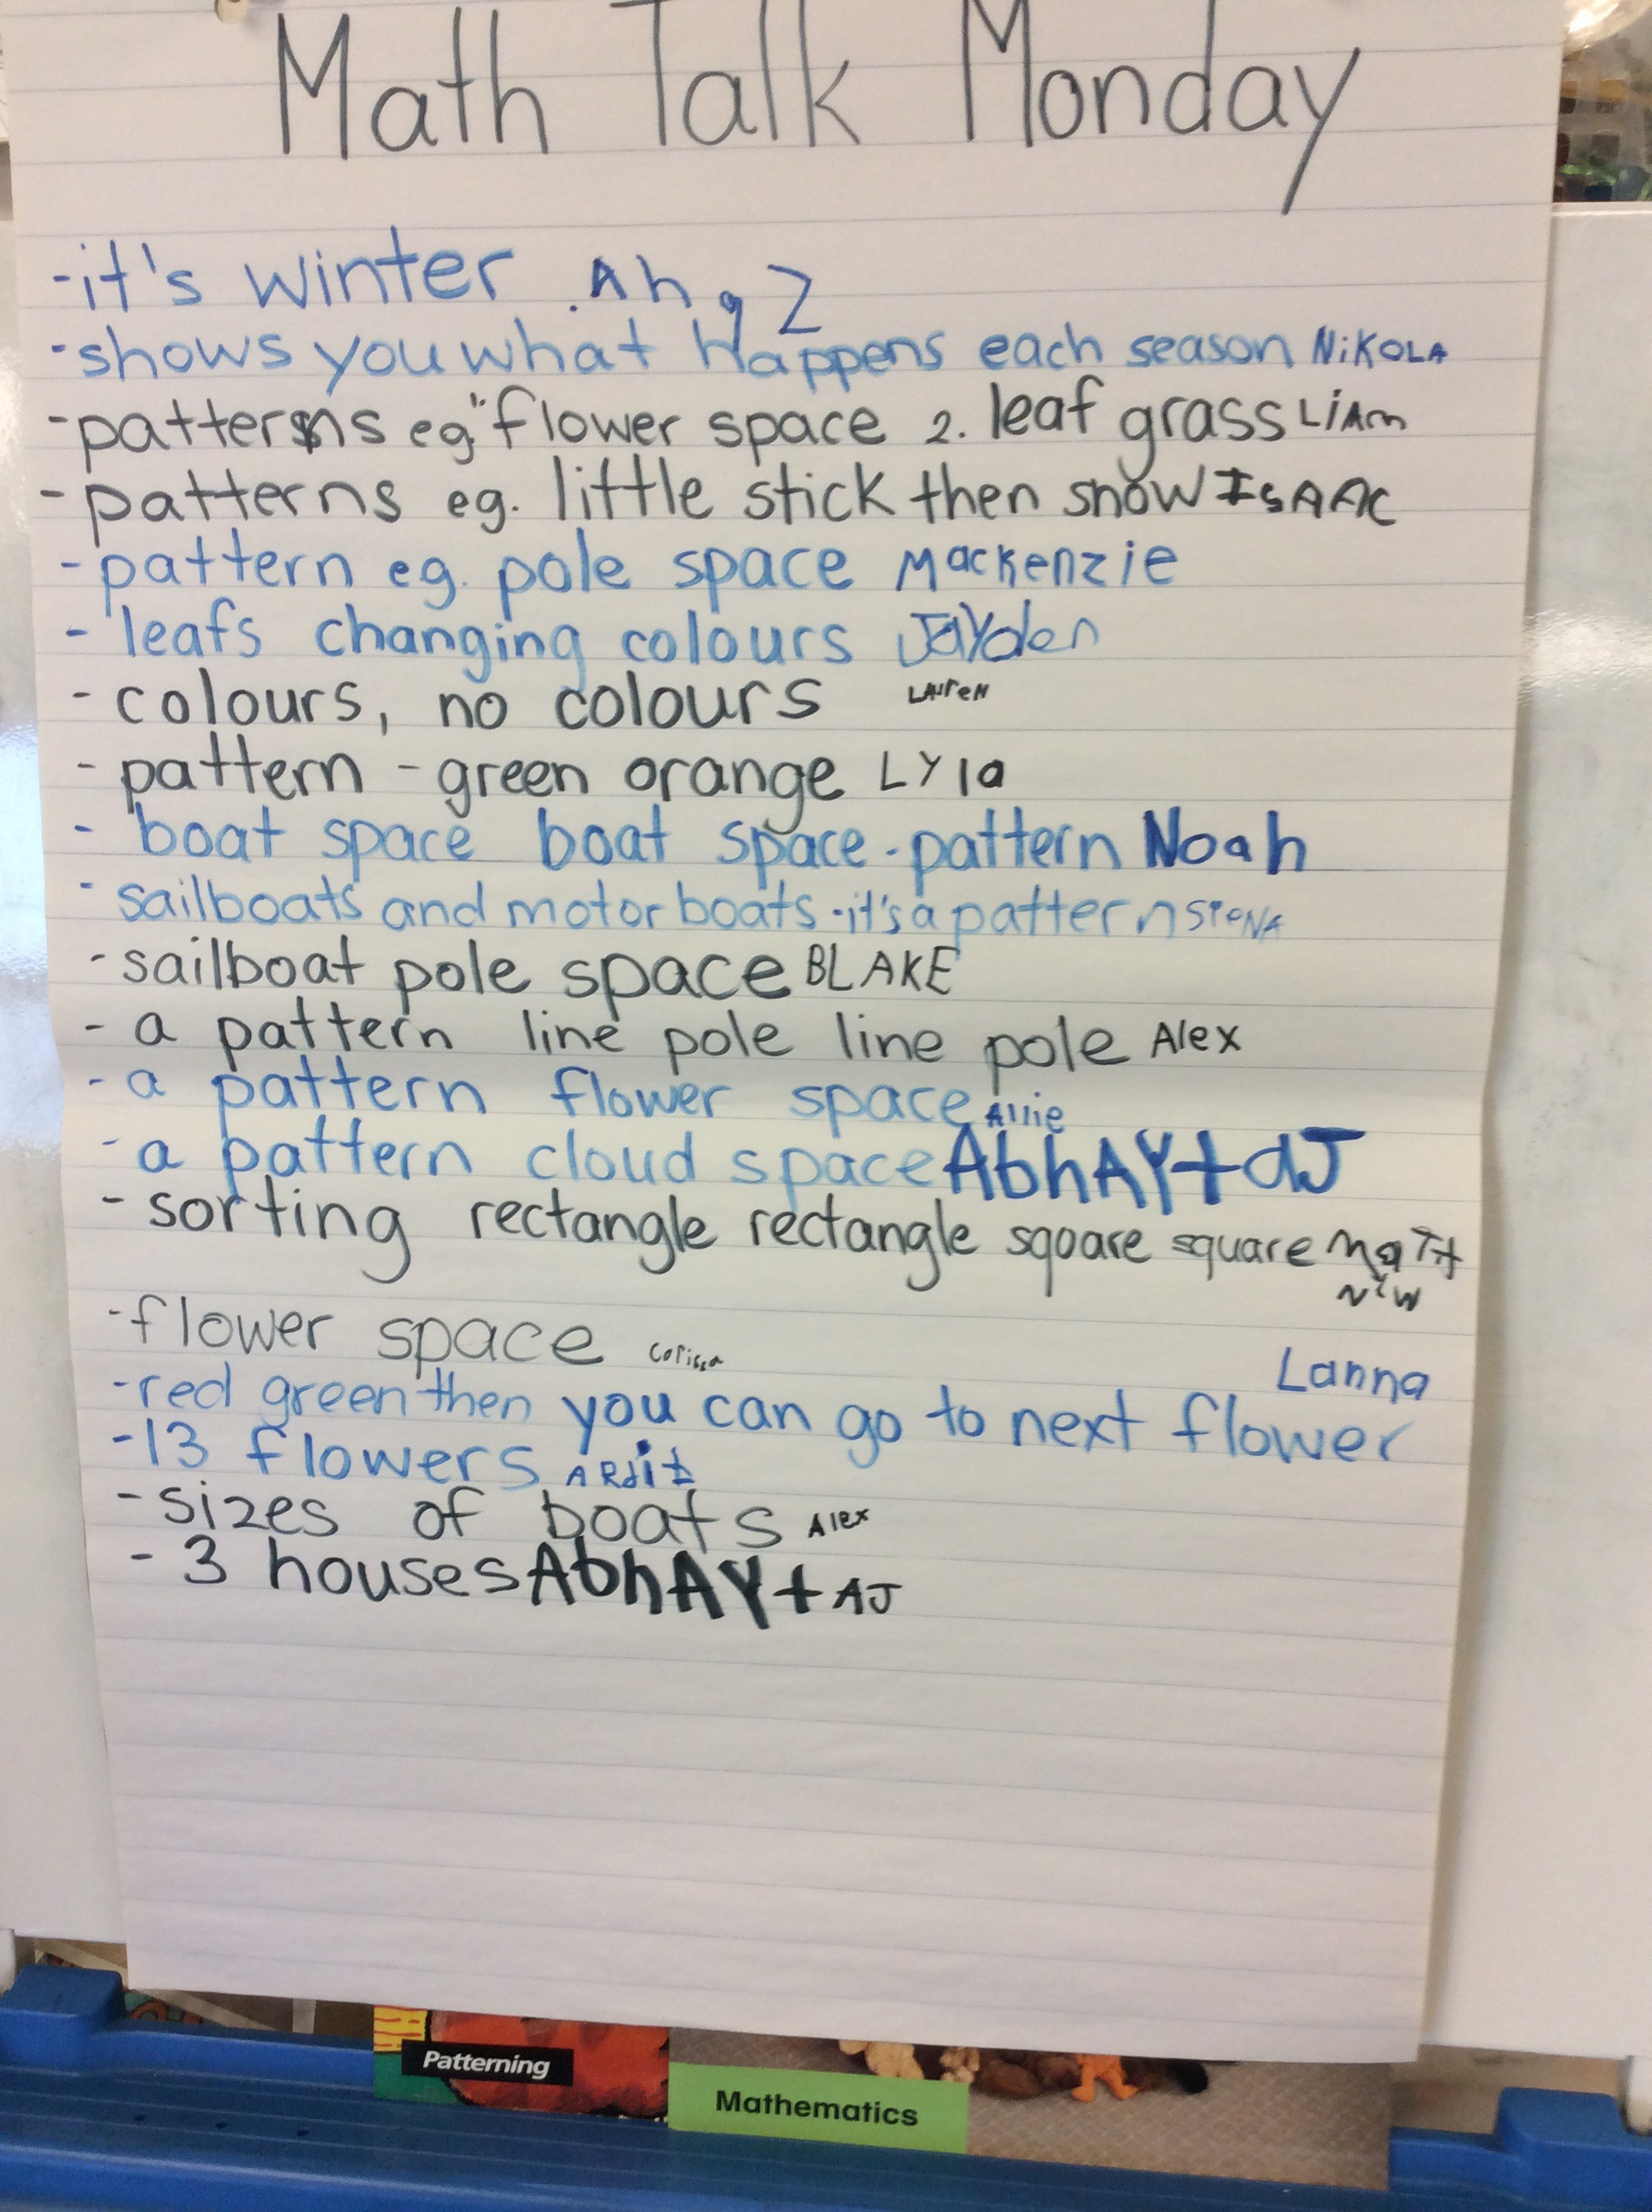 Math Talk Monday
-it's winter
-shows you what happens each season NiKOLA
-patterns eg" flower space 2. leaf grass LiAm
-patterns eg. little stick then snow IsAAC
-pattern eg. pole space Mackenzie
-leafs changing colours JaYden
-colours, no colours LAUreN
-pattern -green orange LYla
-boat space boat space-pattern Noah
-sailboats and motor boats-it's a pattern SieNA
-sailboat pole space BLAKE
-a pattern line pole line pole Alex
-a pattern flower space Allie
-a pattern cloud space AbhAY+aJ
-sorting rectangle rectangle square square MaTt
-flower space Corissa
Lanna
-red green then you can go to next flower
-13 flowers ARdit
-sizes of boats Alex
-3 houses AbhAY+AJ
Patterning
Mathematics